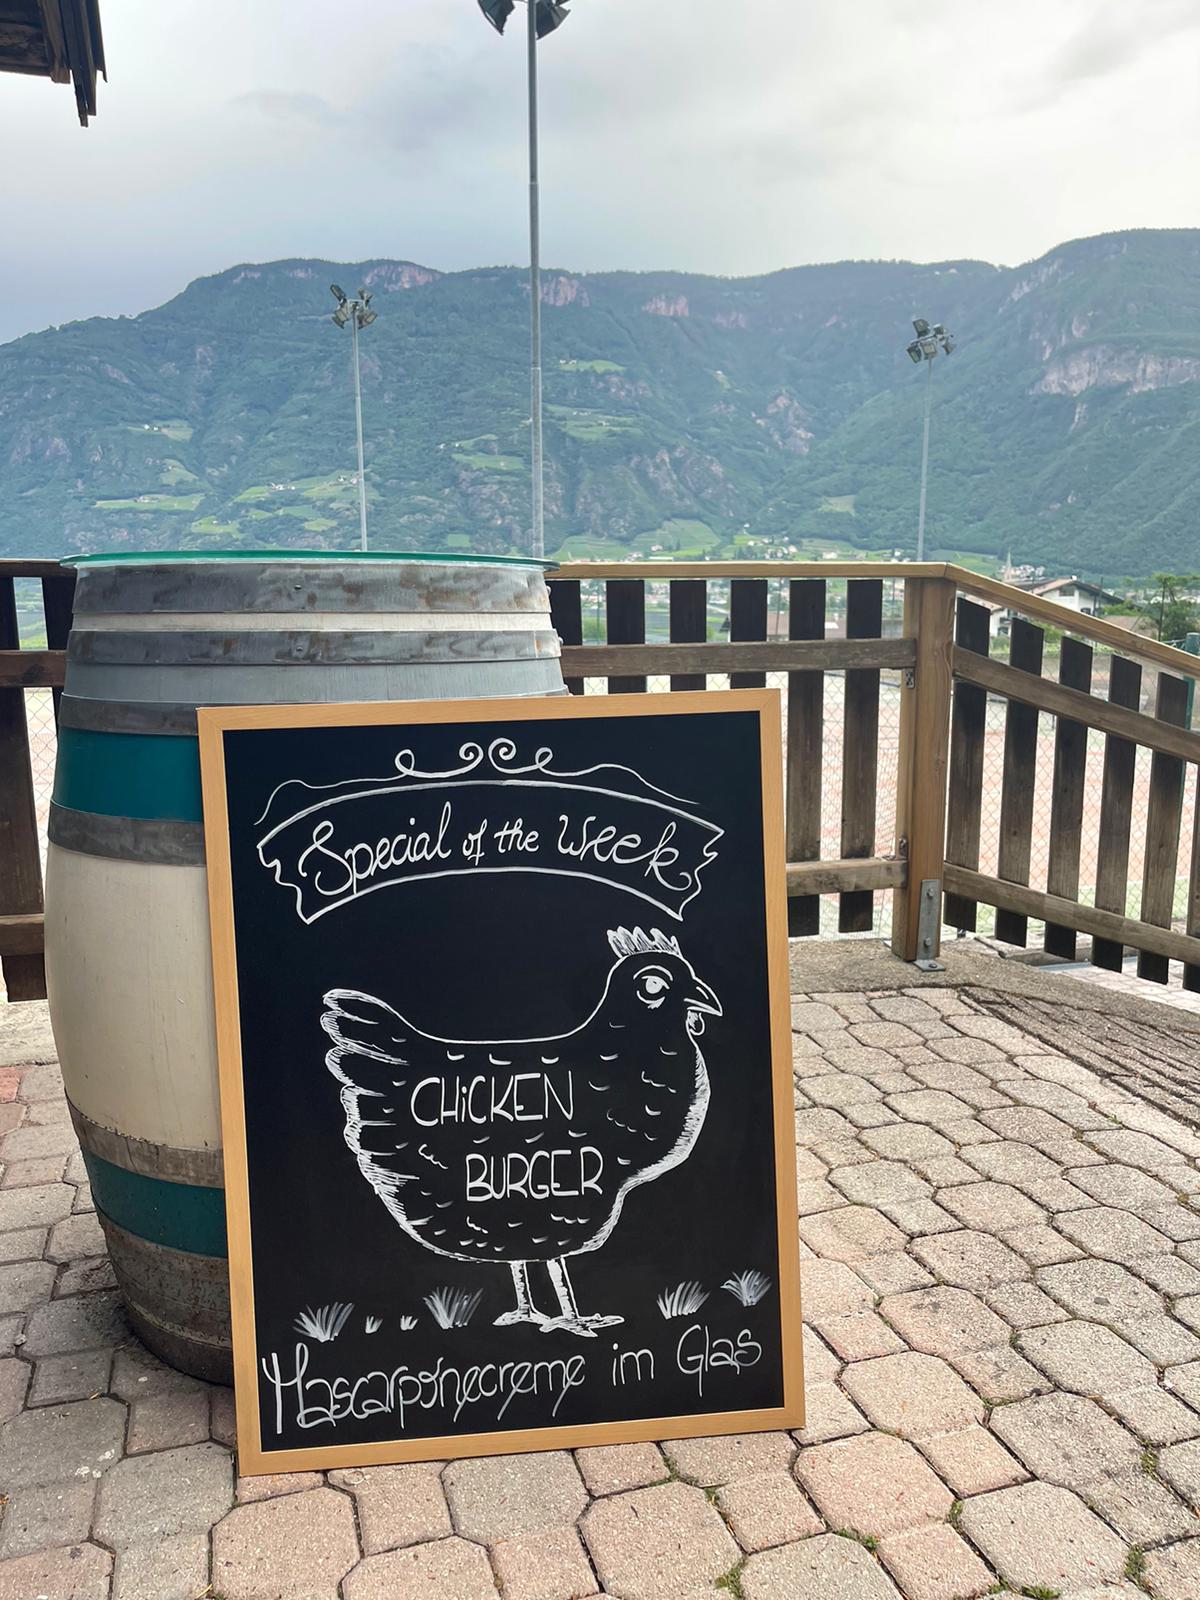 Special of the Week
CHiCKEN
BURGER
Mascarponecreme im Glas